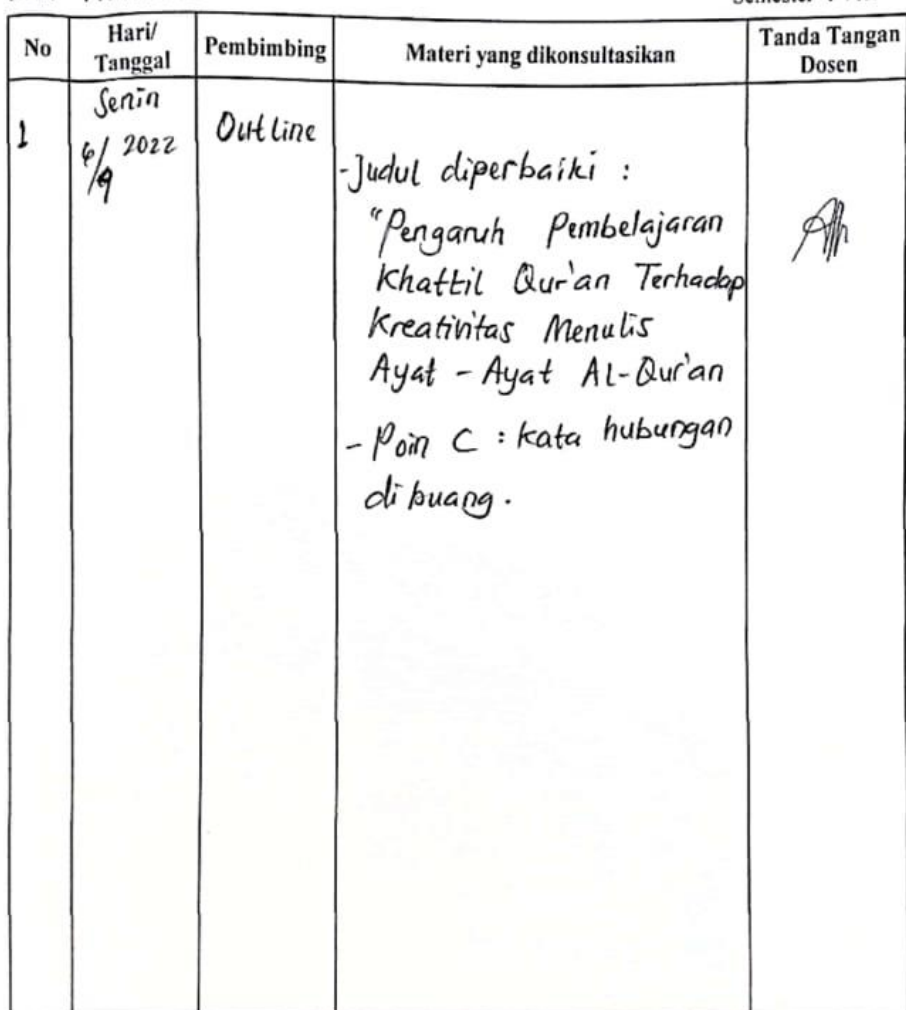 No
Hari/
Tanggal
Pembimbing
Materi yang dikonsultasikan
Tanda Tangan
Dosen
1
Senin
6/9 2022
Outline
-Judul diperbaiki :
"Pengaruh Pembelajaran
Khattil Qur'an Terhadap
Kreativitas Menulis
Ayat - Ayat Al-Qur'an
- Poin C : kata hubungan
di buang .